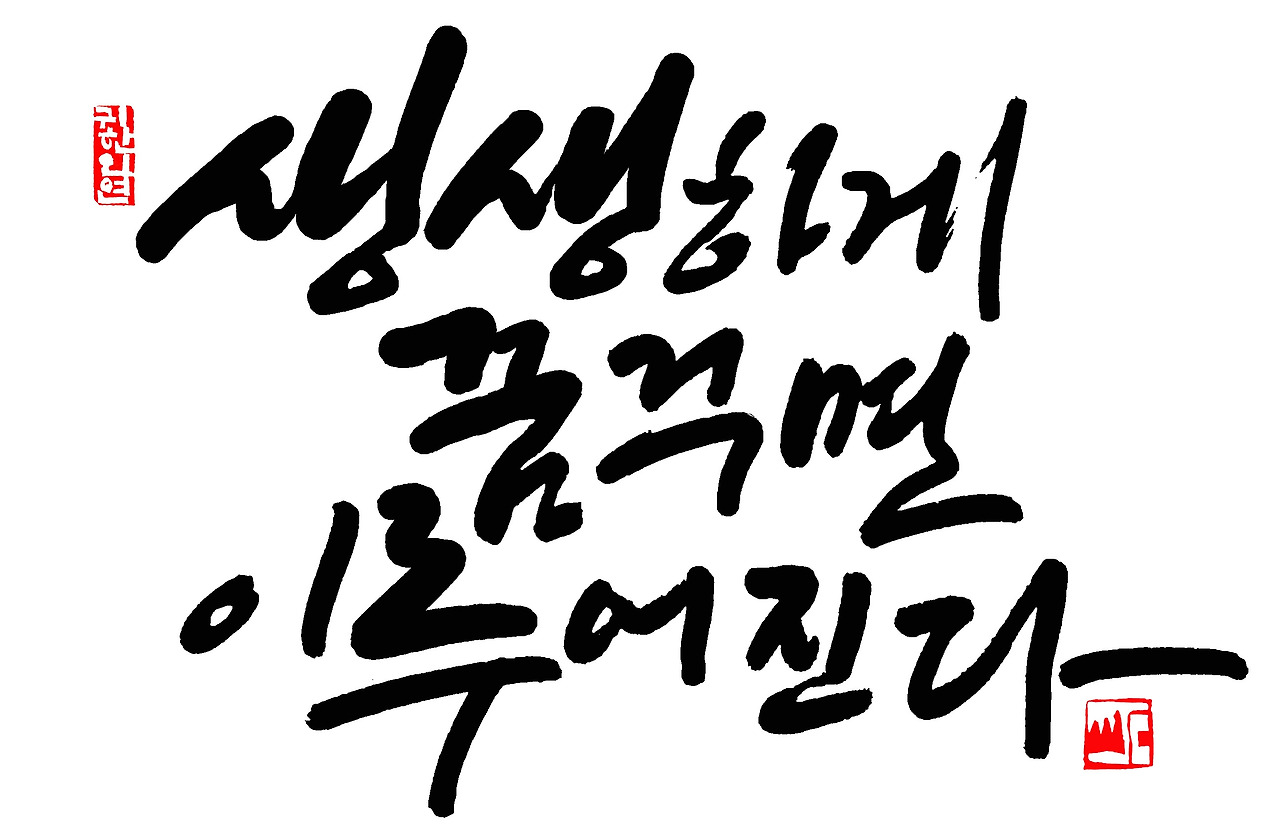 생생하게
꿈꾸면
이루어진다